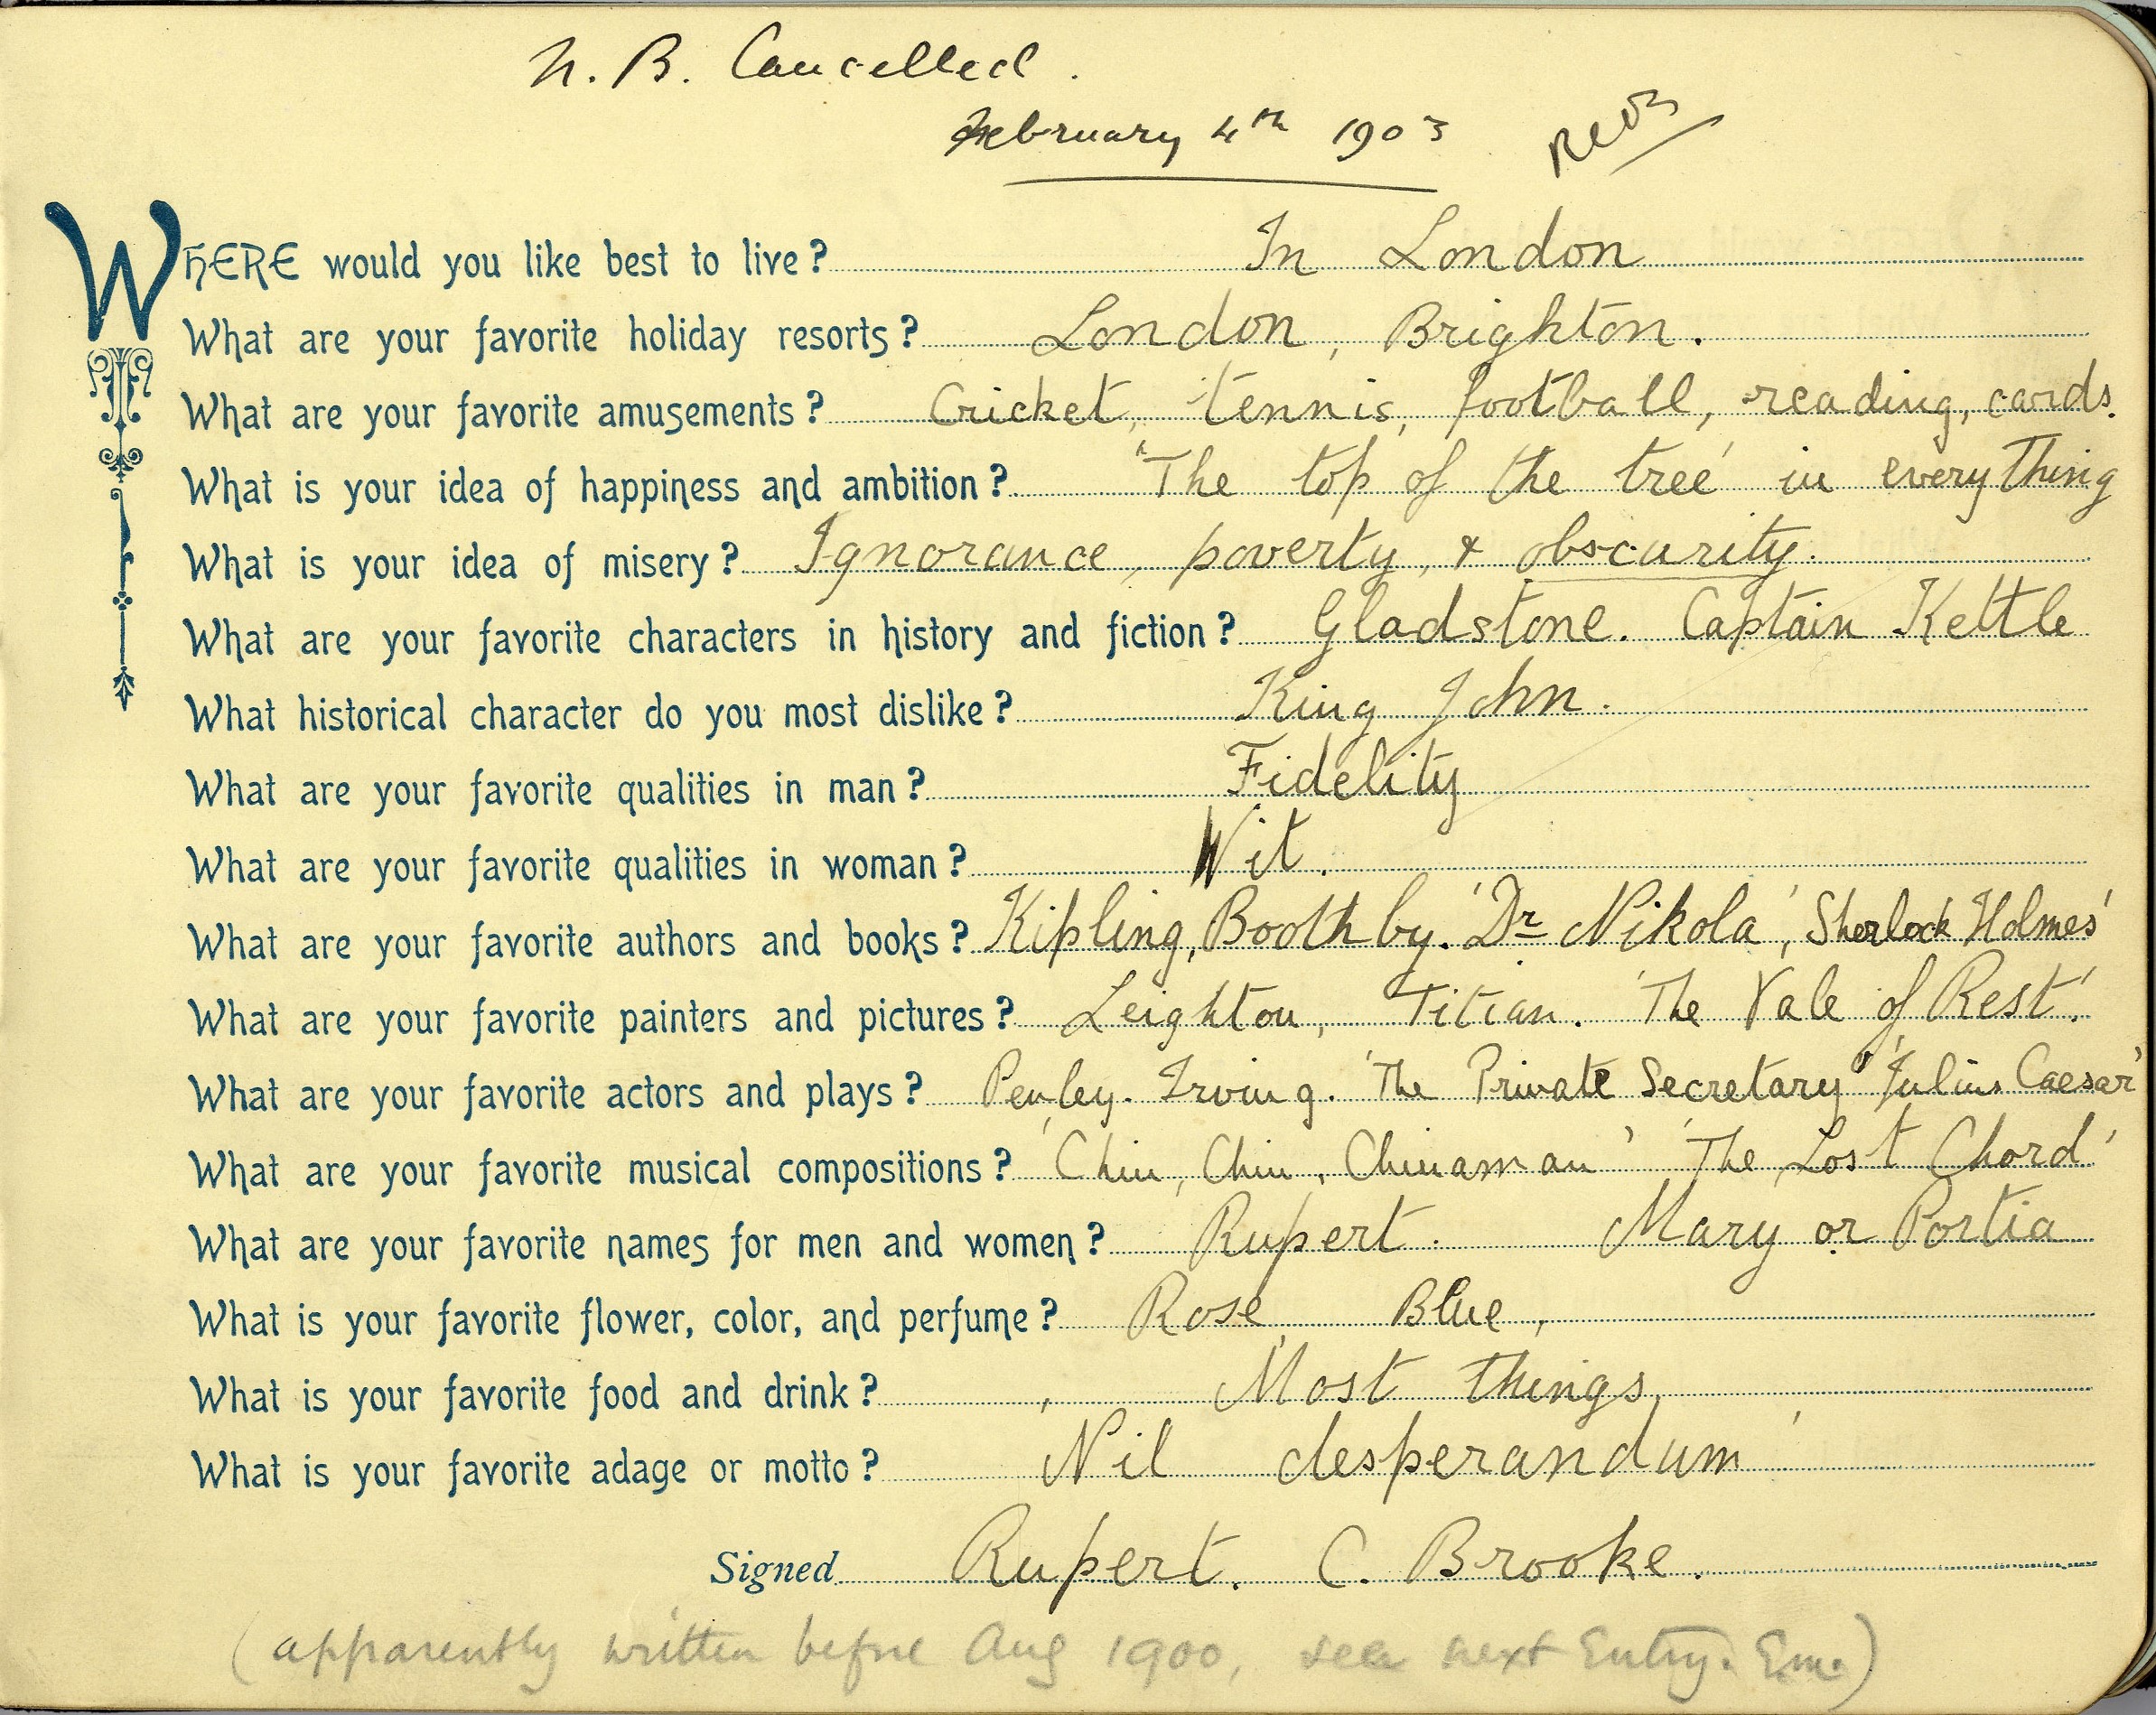 N. B. Cancelled.
February 4th 1903
WHERE would you like best to live? In London
What are your favorite holiday resorts? London, Brighton.
What are your favorite amusements? Cricket, tennis, football, reading, cards.
What is your idea of happiness and ambition? 'The top of the tree' in everything
What is your idea of misery? Ignorance, poverty, & obscurity.
What are your favorite characters in history and fiction? Gladstone. Captain Kettle
What historical character do you most dislike? King John.
What are your favorite qualities in man? Fidelity
What are your favorite qualities in woman? Wit.
What are your favorite authors and books? Kipling, Boothby. 'Dr Nikola', 'Sherlock Holmes'
What are your favorite painters and pictures? Leighton, Titian. 'The Vale of Rest'.
What are your favorite actors and plays? Penley. Irving. 'The Private Secretary' 'Julius Caesar'
What are your favorite musical compositions? 'Chin, Chin, Chinaman' 'The Lost Chord'
What are your favorite names for men and women? Rupert. Mary or Portia
What is your favorite flower, color, and perfume? Rose, Blue,
What is your favorite food and drink? Most things
What is your favorite adage or motto? 'Nil desperandum'
Signed Rupert. C. Brooke.
(apparently written before Aug 1900, see next Entry. E.m.)